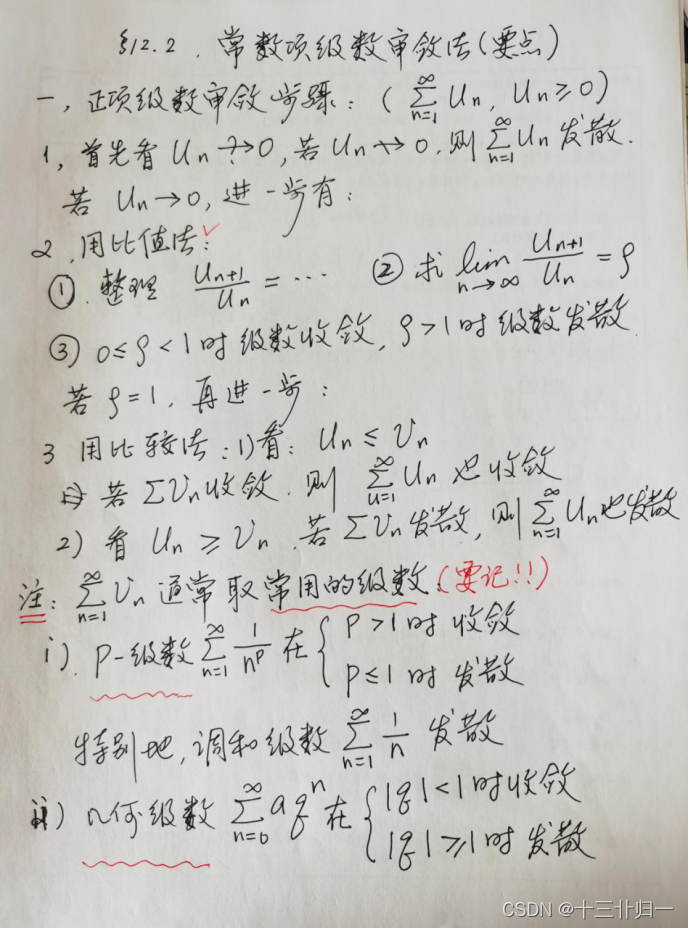 §12.2. 常数项级数审敛法(要点)
一, 正项级数审敛步骤: (∑_{n=1}^{∞} Un, Un≥0)
1, 首先看 Un→?0, 若 Un↛0, 则 ∑_{n=1}^{∞} Un 发散.
若 Un→0, 进一步有:
2. 用比值法: ✓
①. 整理 U_{n+1}/U_n = … ② 求 lim_{n→∞} U_{n+1}/U_n = ρ
③ 0≤ρ<1时级数收敛, ρ>1时级数发散.
若 ρ=1, 再进一步:
3 用比较法: 1)看: Un ≤ Vn
若 ∑Vn收敛. 则 ∑_{u=1}^{∞} Un 也收敛
2) 看 Un ≥ Vn. 若 ∑Vn发散, 则 ∑_{n=1}^{∞} Un也发散
注: ∑_{n=1}^{∞} Vn 通常取常用的级数(要记!!)
i). P-级数 ∑_{n=1}^{∞} 1/n^p 在 { P>1时 收敛
P≤1时 发散
特别地, 调和级数 ∑_{n=1}^{∞} 1/n 发散
ii) 几何级数 ∑_{n=0}^{∞} aq^n 在 { |q|<1时收敛
|q|≥1时发散
CSDN @十三廿归一